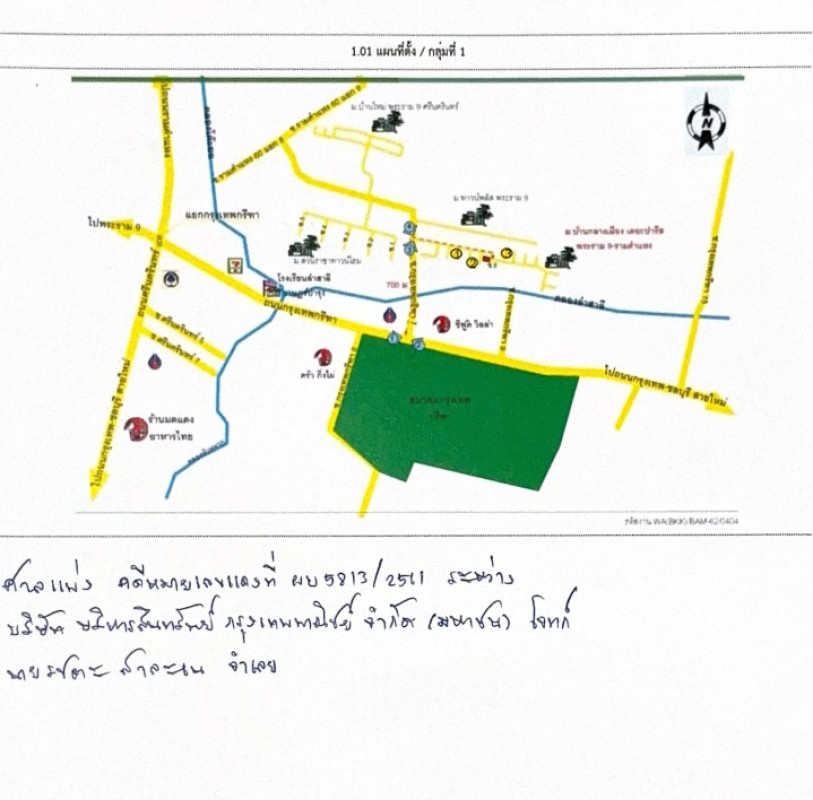 1.01 แผนที่ตั้ง / กลุ่มที่ 1
ม.บ้านใหม่ พระราม 9 ศรีนครินทร์
N
ซ.รามคำแหง 60 แยก 8
ไปพระราม 9
แยกกรุงเทพกรีฑา
ม ทาวน์พลัส พระราม 9
ม บ้านกลางเมือง เดอะปารีส
พระราม 9-รามคำแหง
7
โรงเรียนลำสาลี
700 ม
คลองลำสาลี
ถนนศรีนครินทร์
ถนนกรุงเทพกรีฑา
ซีฟู้ด วิลล่า
ซ.ศรีนครินทร์ 5
ซ.ศรีนครินทร์ 7
ครัว กิ่งไผ่
ไปถนนกรุงเทพ-ชลบุรี สายใหม่
ไปถนนกรุงเทพ-ชลบุรี สายใหม่
ร้านมดแดง
อาหารไทย
ศาลแพ่ง คดีหมายเลขแดงที่ ผบ5813/2561 ระหว่าง
บริษัท บริหารสินทรัพย์ กรุงเทพพาณิชย์ จำกัด (มหาชน) โจทก์
จำเลย